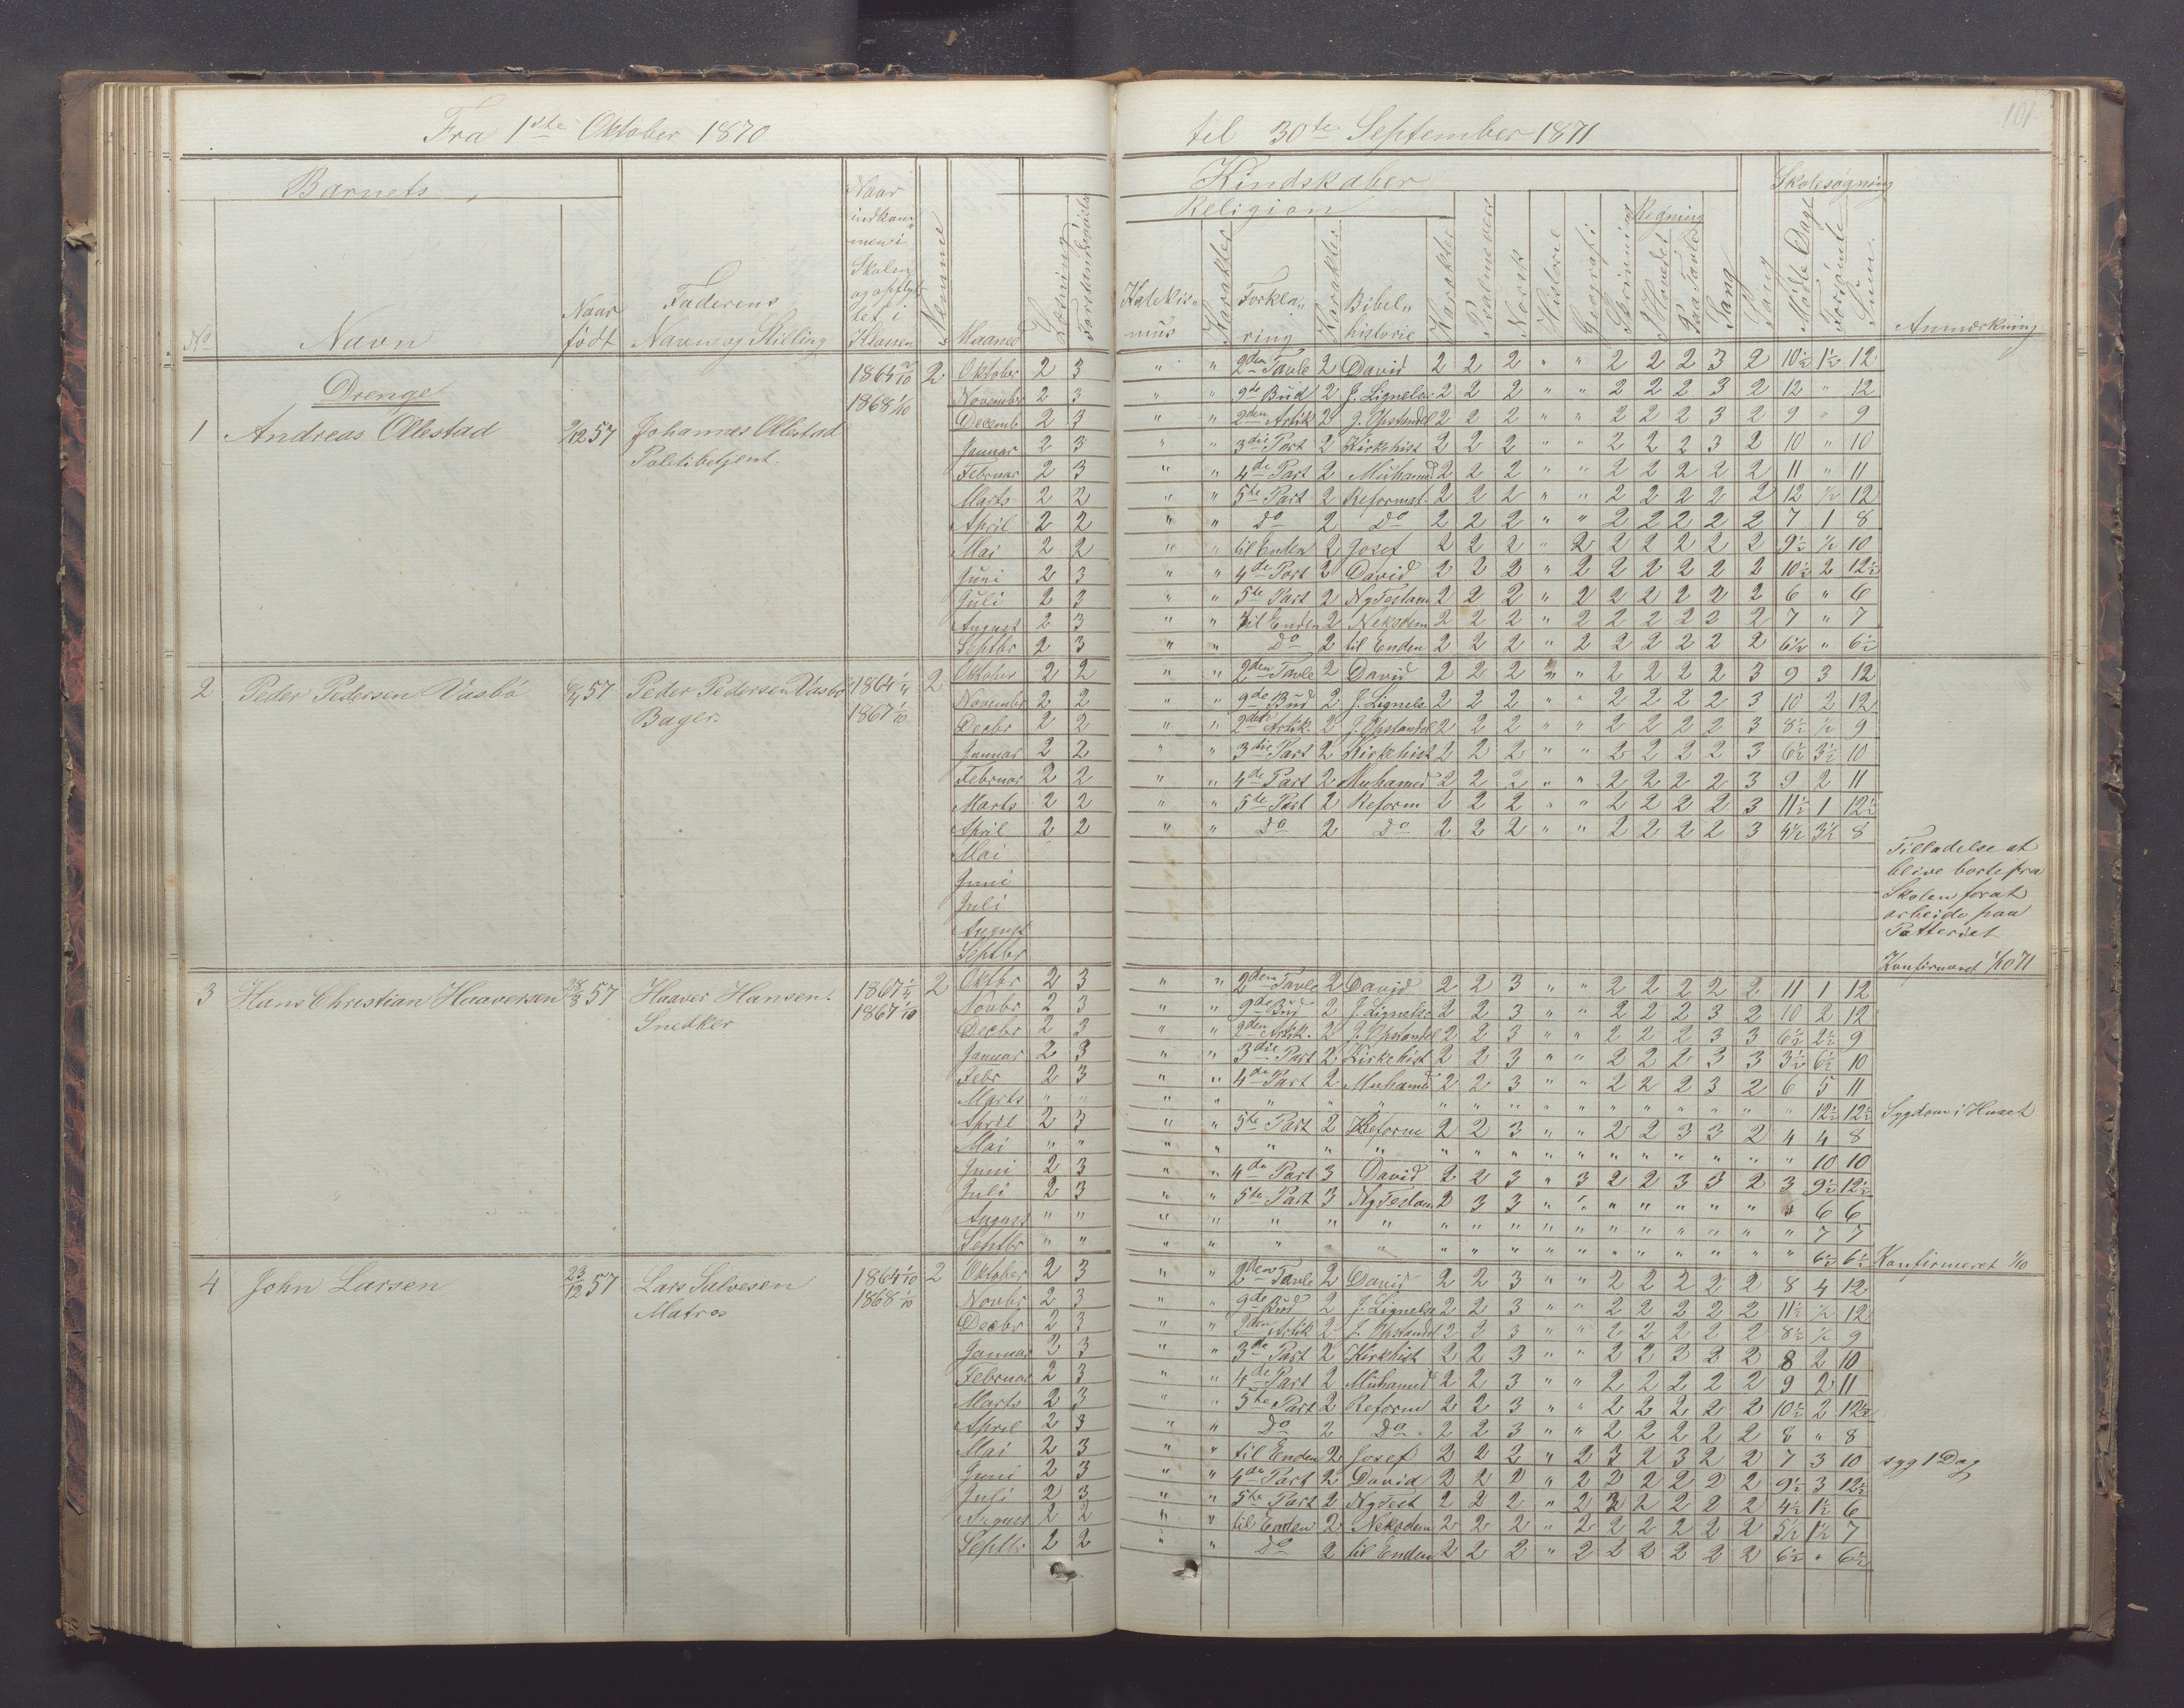 Fra 1ste Oktober 1870 til 30te September 1871
101.
Barnets
Kundskaber
Skolesøgning
Religion
Regning
No
Navn
Naar født
Faderens Navn og Stilling
Naar indkommen i Skolen og opflyttet i Klassen
Maaned
Læsning
Katekismus
Karakter
Forklaring
Karakter
Bibelhistorie
Karakter
Psalmevers
Norsk
Historie
Geografi
Skrivning
I Hovedet
Paa Tavle
Sang
Mødte Dage
Forsømte
Sum
Anmærkning
Drenge
1 Andreas Ollestad 57 Johannes Ollestad Politibetjent. 1864 1868 1/10 2
Oktober 2 3 " " 2den Tavle 2 David 2 2 2 " " 2 2 2 3 2 10½ 1½ 12
November 2 3 " " 9de Bud 2 J. Lignelser 2 2 2 " " 2 2 2 3 2 12 " 12
Decemb 2 3 " " 2den Artik 2 J. Opstandel 2 2 2 " " 2 2 2 3 2 9 " 9
Januar 2 3 " " 3die Part 2 Kirkehist 2 2 2 " " 2 2 2 3 2 10 " 10
Februar 2 3 " " 4de Part 2 Muhamed 2 2 2 " " 2 2 2 2 2 11 " 11
Marts 2 2 " " 5te Part 2 Reformat. 2 2 2 " " 2 2 2 2 2 12 ½ 12
April 2 2 " " Do 2 Do 2 2 2 " " 2 2 2 2 2 7 1 8
Mai 2 2 " " til Enden 2 Josef 2 2 2 " 2 2 2 2 2 2 9½ ½ 10
Juni 2 3 " " 4de Part 2 David 2 2 2 " 2 2 2 2 2 2 10½ 2 12½
Juli 2 3 " " 5te Part 2 Ny Testam 2 2 2 " 2 2 2 2 2 2 6 " 6
August 2 3 " " til Enden 2 Nekodem 2 2 2 " 2 2 2 2 2 2 7 " 7
Septbr 2 3 " " Do 2 til Enden 2 2 2 " 2 2 2 2 2 2 6½ " 6½
2 Peder Pedersen Vasbø 57 Peder Pedersen Vasbø Bager. 1864 1867 1/10 2
Oktober 2 2 " " 2den Tavle 2 David 2 2 2 " " 2 2 2 2 3 9 3 12
Novembr 2 2 " " 9de Bud 2 J. Lignels 2 2 2 " " 2 2 2 2 3 10 2 12
Decbr 2 2 " " 2den Artik. 2 J. Opstandel 2 2 2 " " 2 2 2 2 3 8½ ½ 9
Januar 2 2 " " 3die Part 2 Kirkehist 2 2 2 " " 2 2 2 2 3 6½ 3½ 10
Februar 2 2 " " 4de Part 2 Muhamed 2 2 2 " " 2 2 2 2 3 9 2 11
Marts 2 2 " " 5te Part 2 Reform 2 2 2 " " 2 2 2 2 3 11½ 1 12½
April 2 2 " " Do 2 Do 2 2 2 " " 2 2 2 2 3 4½ 3½ 8
Mai
Juni
Juli
August
Septbr
Tilladelse at
blive borte fra
Skolen forat
arbeide paa
Potteriet
Konfirmeret 1/10 71
3 Hans Christian Haaversen 28/3 57 Haaver Hansen. Snedker 1867 1867 1/10 2
Oktbr 2 3 " " 2den Tavle 2 David 2 2 3 " " 2 2 2 2 2 11 1 12
Novbr 2 3 " " 9de Bud 2 J. Lignelse 2 2 3 " " 2 2 2 3 2 10 2 12
Decbr 2 3 " " 2den Artik. 2 J. Opstandel 2 2 3 " " 2 2 2 3 3 6½ 2½ 9
Januar 2 3 " " 3die Part 2 Kirkehist 2 2 3 " " 2 2 2 3 3 3½ 6½ 10
Febr 2 3 " " 4de Part 2 Muhamed 2 2 3 " " 2 2 2 3 2 6 5 11
Marts " " " " " " " " " " " " " " " " " " 12½ 12½ Sygdom i Huset
April 2 3 " " 5te Part 2 Reform 2 2 3 " " 2 2 3 3 2 4 4 8
Mai " " " " " " " " " " " " " " " " " " 10 10
Juni 2 3 " " 4de Part 3 David 2 2 3 " 3 2 2 3 3 2 3 9½ 12½
Juli 2 3 " " 5te Part 3 Ny Testam 2 3 3 " " " " " " " " 6 6
August " " " " " " " " " " " " " " " " " " 7 7
Septbr " " " " " " " " " " " " " " " " " " 6½ 6½ Konfirmeret 1/10
4 John Larsen 23/12 57 Lars Salvesen Matros 1864 1/10 1868 1/10 2
Oktober 2 3 " " 2den Tavle 2 David 2 2 3 " " 2 2 2 2 2 8 4 12
Novbr 2 3 " " 9de Bud 2 J. Lignelse 2 2 3 " " 2 2 2 2 2 11½ ½ 12
Decbr 2 3 " " 2den Artik 2 J. Opstandel 2 2 3 " " 2 2 2 2 2 8½ ½ 9
Januar 2 3 " " 3de Part 2 Kirkhist 2 2 3 " " 2 2 2 2 2 8 2 10
Februar 2 3 " " 4de Part 2 Muhamed 2 2 3 " " 2 2 2 2 2 9 2 11
Marts 2 3 " " 5te Part 2 Reform 2 2 3 " " 2 2 2 2 2 10½ 2 12½
April 2 3 " " Do 2 Do 2 2 3 " " 2 2 2 2 2 8 " 8
Mai 2 3 " " til Enden 2 Josef 2 2 2 " 2 3 2 3 2 2 7 3 10 syg 1 Dag
Juni 2 3 " " 4de Part 2 David 2 2 2 " 2 2 2 2 2 2 9½ 3 12½
Juli 2 3 " " 5te Part 2 Ny Test 2 2 2 " 2 2 2 2 2 2 4½ 1½ 6
August 2 2 " " til Enden 2 Nekodem 2 2 2 " 2 2 2 2 2 2 5½ 1½ 7
Septbr 2 2 " " Do 2 til Enden 2 2 2 " 2 2 2 2 2 2 6½ " 6½